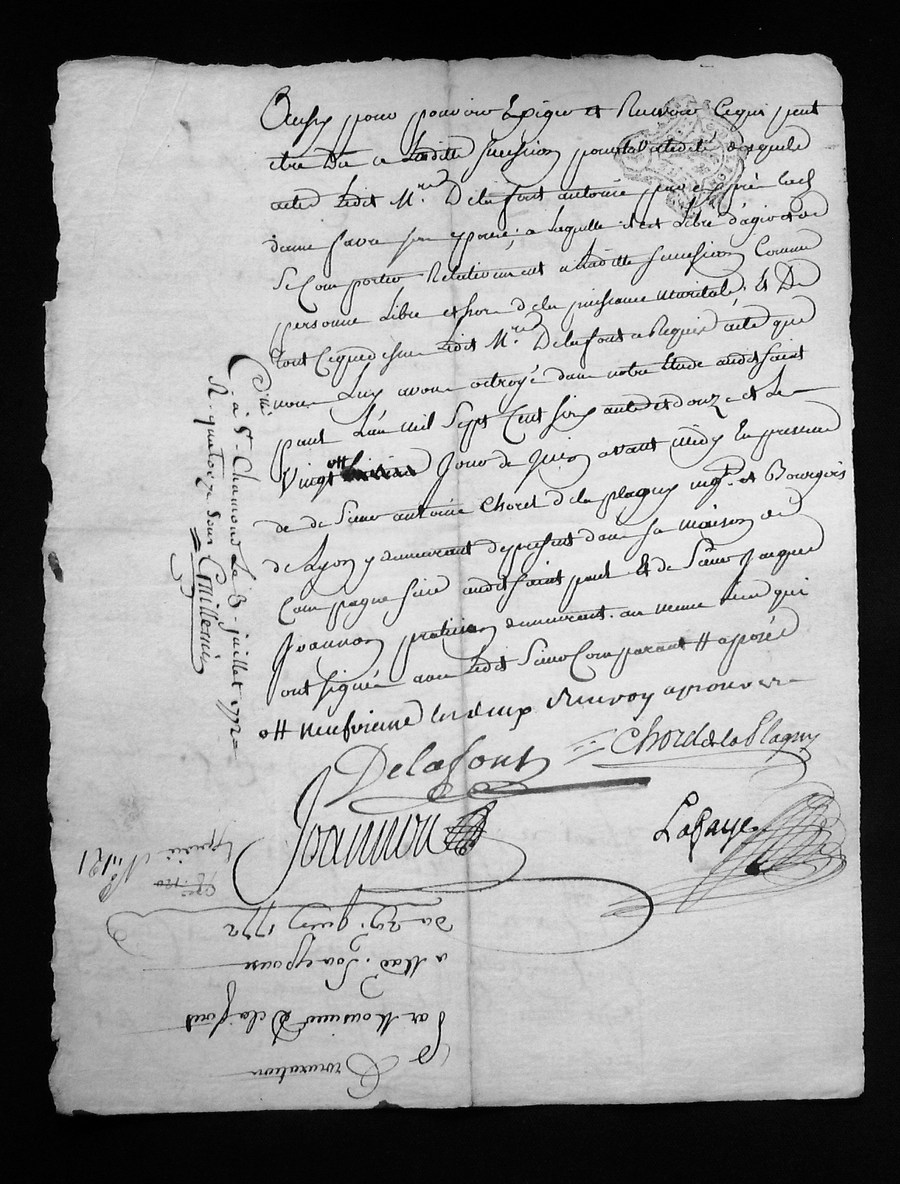 pour pouvoir Exiger et Cequi peut
être Dû a Laditte succession pour la validité desquels
acte Ledit Mre. Delafont autorise par exprès lad.
dame favre son epouse, a Laquelle il est Libre d'agir et de
Se Comporter Relativement a Laditte succession Comme
personne Libre et hors de la puissance Maritale, Et De
tout Ceque dessus Ledit Mre. Delafont a Requis acte que
nous Luy avons octroyé dans notre Etude audit saint
paul L'an Mil Sept Cent Soix.ante et douze et Le
Vingt ++ Jour de Juin avant midy En presence
de de Sieur antoine Choret de la plagny et Bourgeois
de Lyon y demeurant de present dans sa maison de
Campagne size audit saint paul Et de Sieur Jacques
Joannon praticien demeurant au meme lieu qui
ont signés avec Ledit Sieur Comparant ++ aposée
++ neufvieme les deux Renvoy aprouver
Delafont = Choret de la Plagny
Joannon
Lafaye
Cllé. à St. Chamond Le 8 juillet 1772
R. quatorze sous
Procuration
Par Monsieur Delafont
a Mad. Son epouse
du 29. juin 1772
No. 121